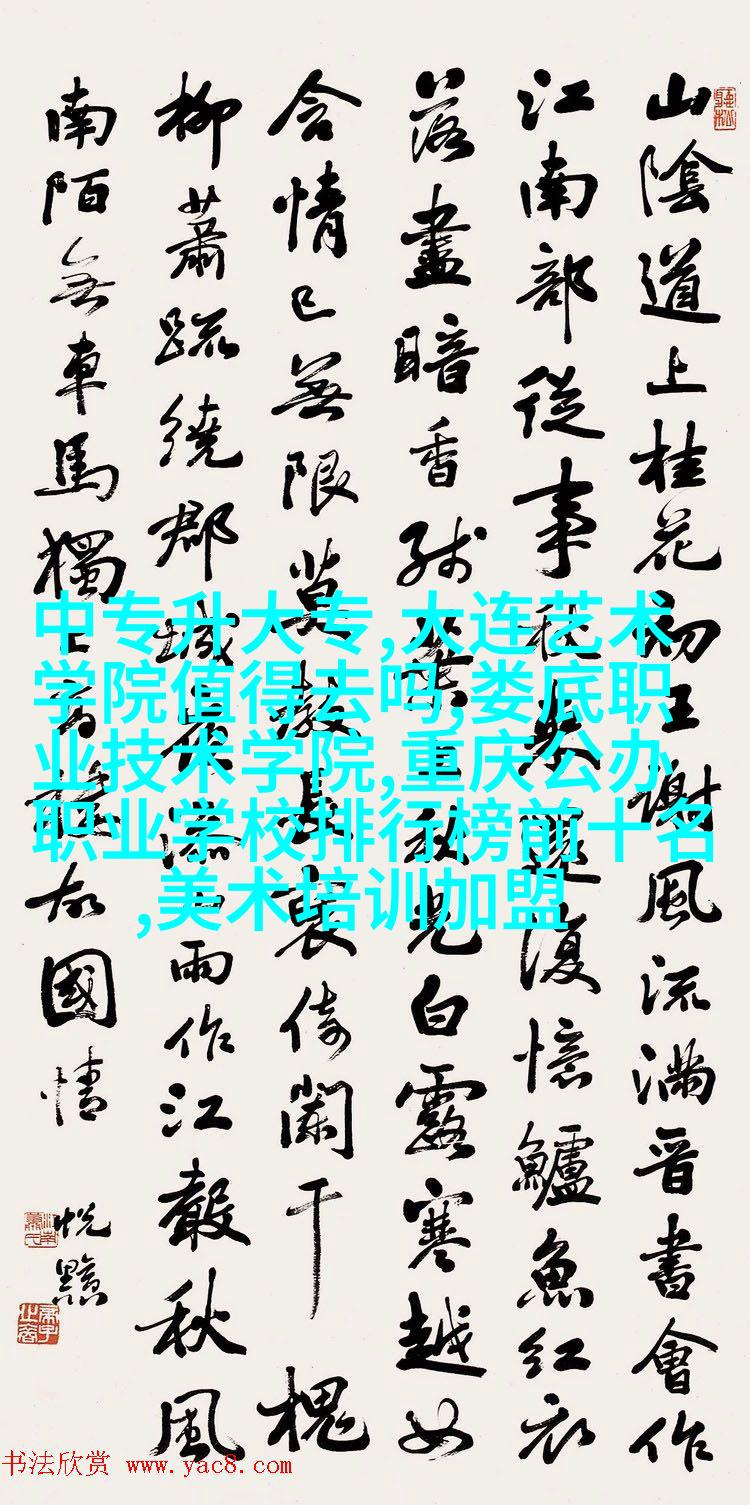 山陰道上桂花初王謝風流滿晉書會作
江南部從事秋來還復憶鱸魚紅衣
落盡暗香殘葉上秋光白露寒越女
含情已無限莫教長袖倚闌干槐
柳蕭疏繞郡城夜添山雨作江聲秋風
南陌無車馬獨上高樓故國情
中专升大专,大连艺术
学院值得去吗,娄底职
业技术学院,重庆公办
职业学校排行榜前十名
,美术培训加盟
书法欣赏 www.yac8.com